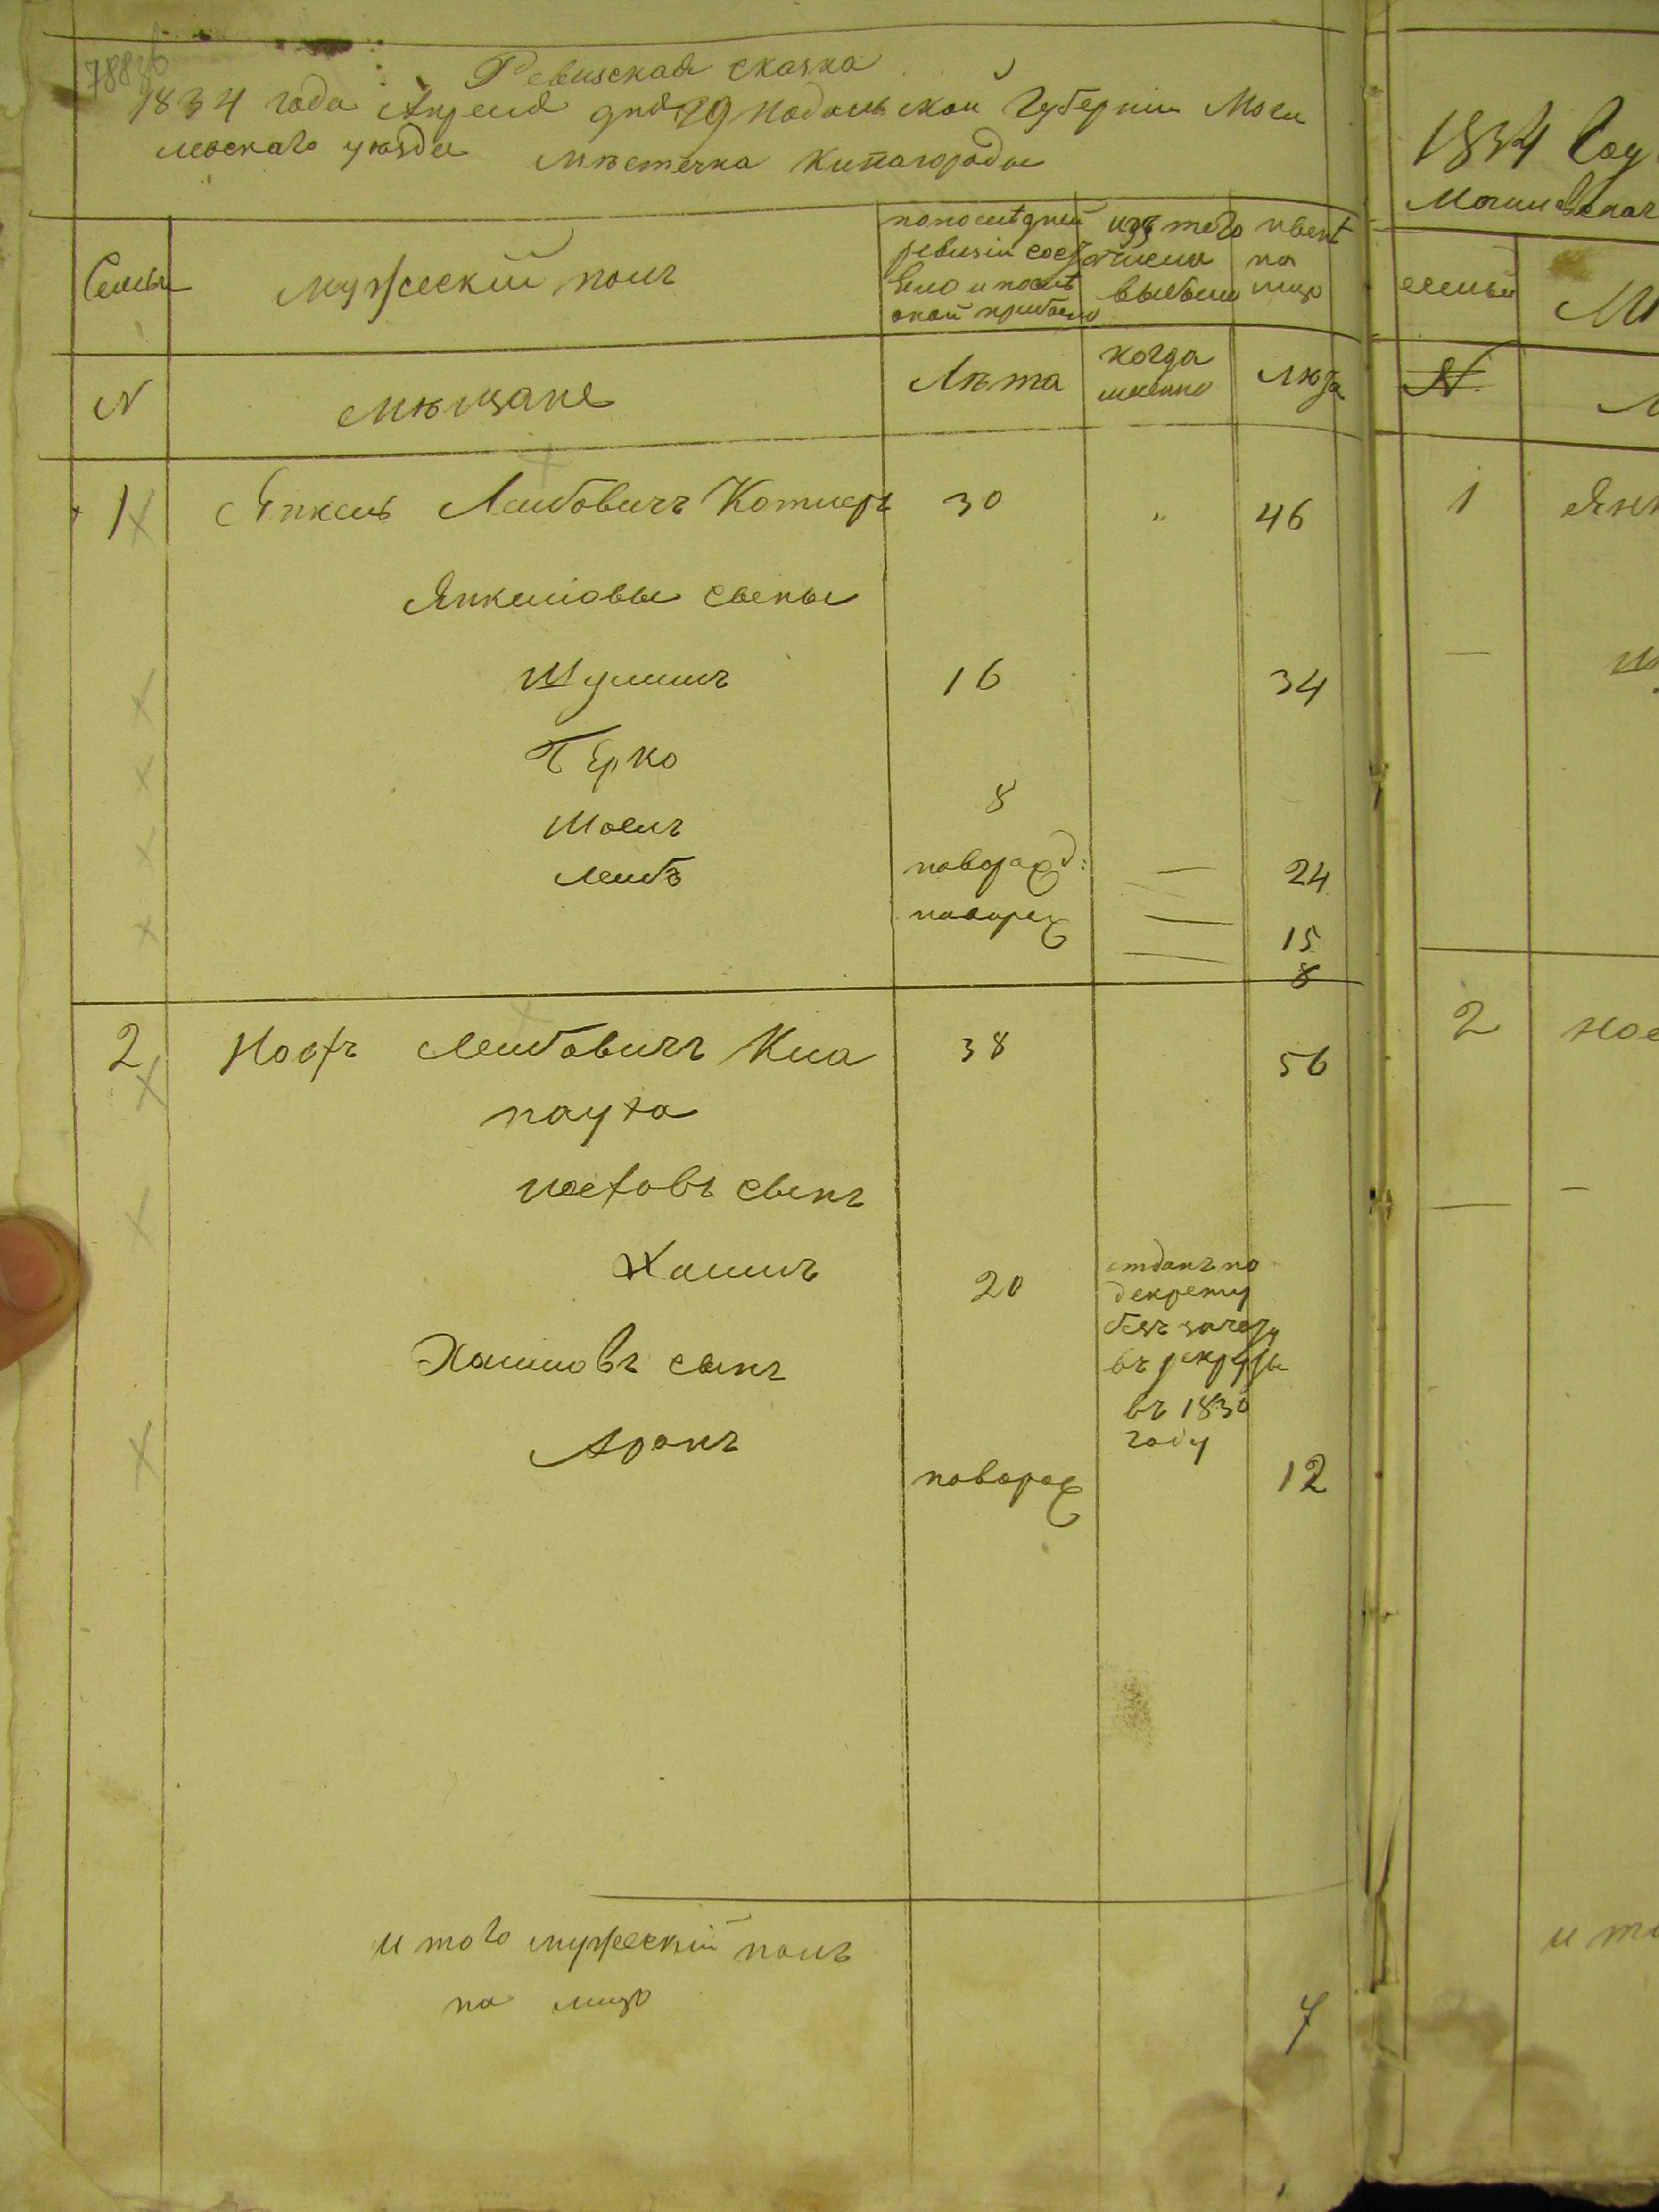 788
Ревизская сказка
1834 года Апреля дня 29 Подольской Губернии Моги
левскаго уѣзда мѣстечка Китайгорода
Семьи
мужескій полъ
по последней
ревизіи состо
яло и послѣ
оной прибыло
изъ того
числа
выбыло
нынѣ
на
лицо
N
мѣщане
Лѣта
когда
именно
лѣта
1
Янкель Лейбовичъ Котляръ
30
"
46
Янкеліовы сыны
Шулимъ
16
34
Берко
8
24
Мошъ
новорожд:
—
15
Лейбъ
новорож
—
8
2
Иосфъ Лейбовичъ Кла
38
56
паухъ
Иосфовъ сынъ
Хаимъ
20
отданъ по
декрету
безъ зачету
въ рекруты
въ 1830
году
Хаимовъ сынъ
Аронъ
новорож
12
итого мужескій полъ
на лицо
7
1834 Году
Могилевскаг
семьи
N
1
Янк
—
2
Иос
—
—
ито